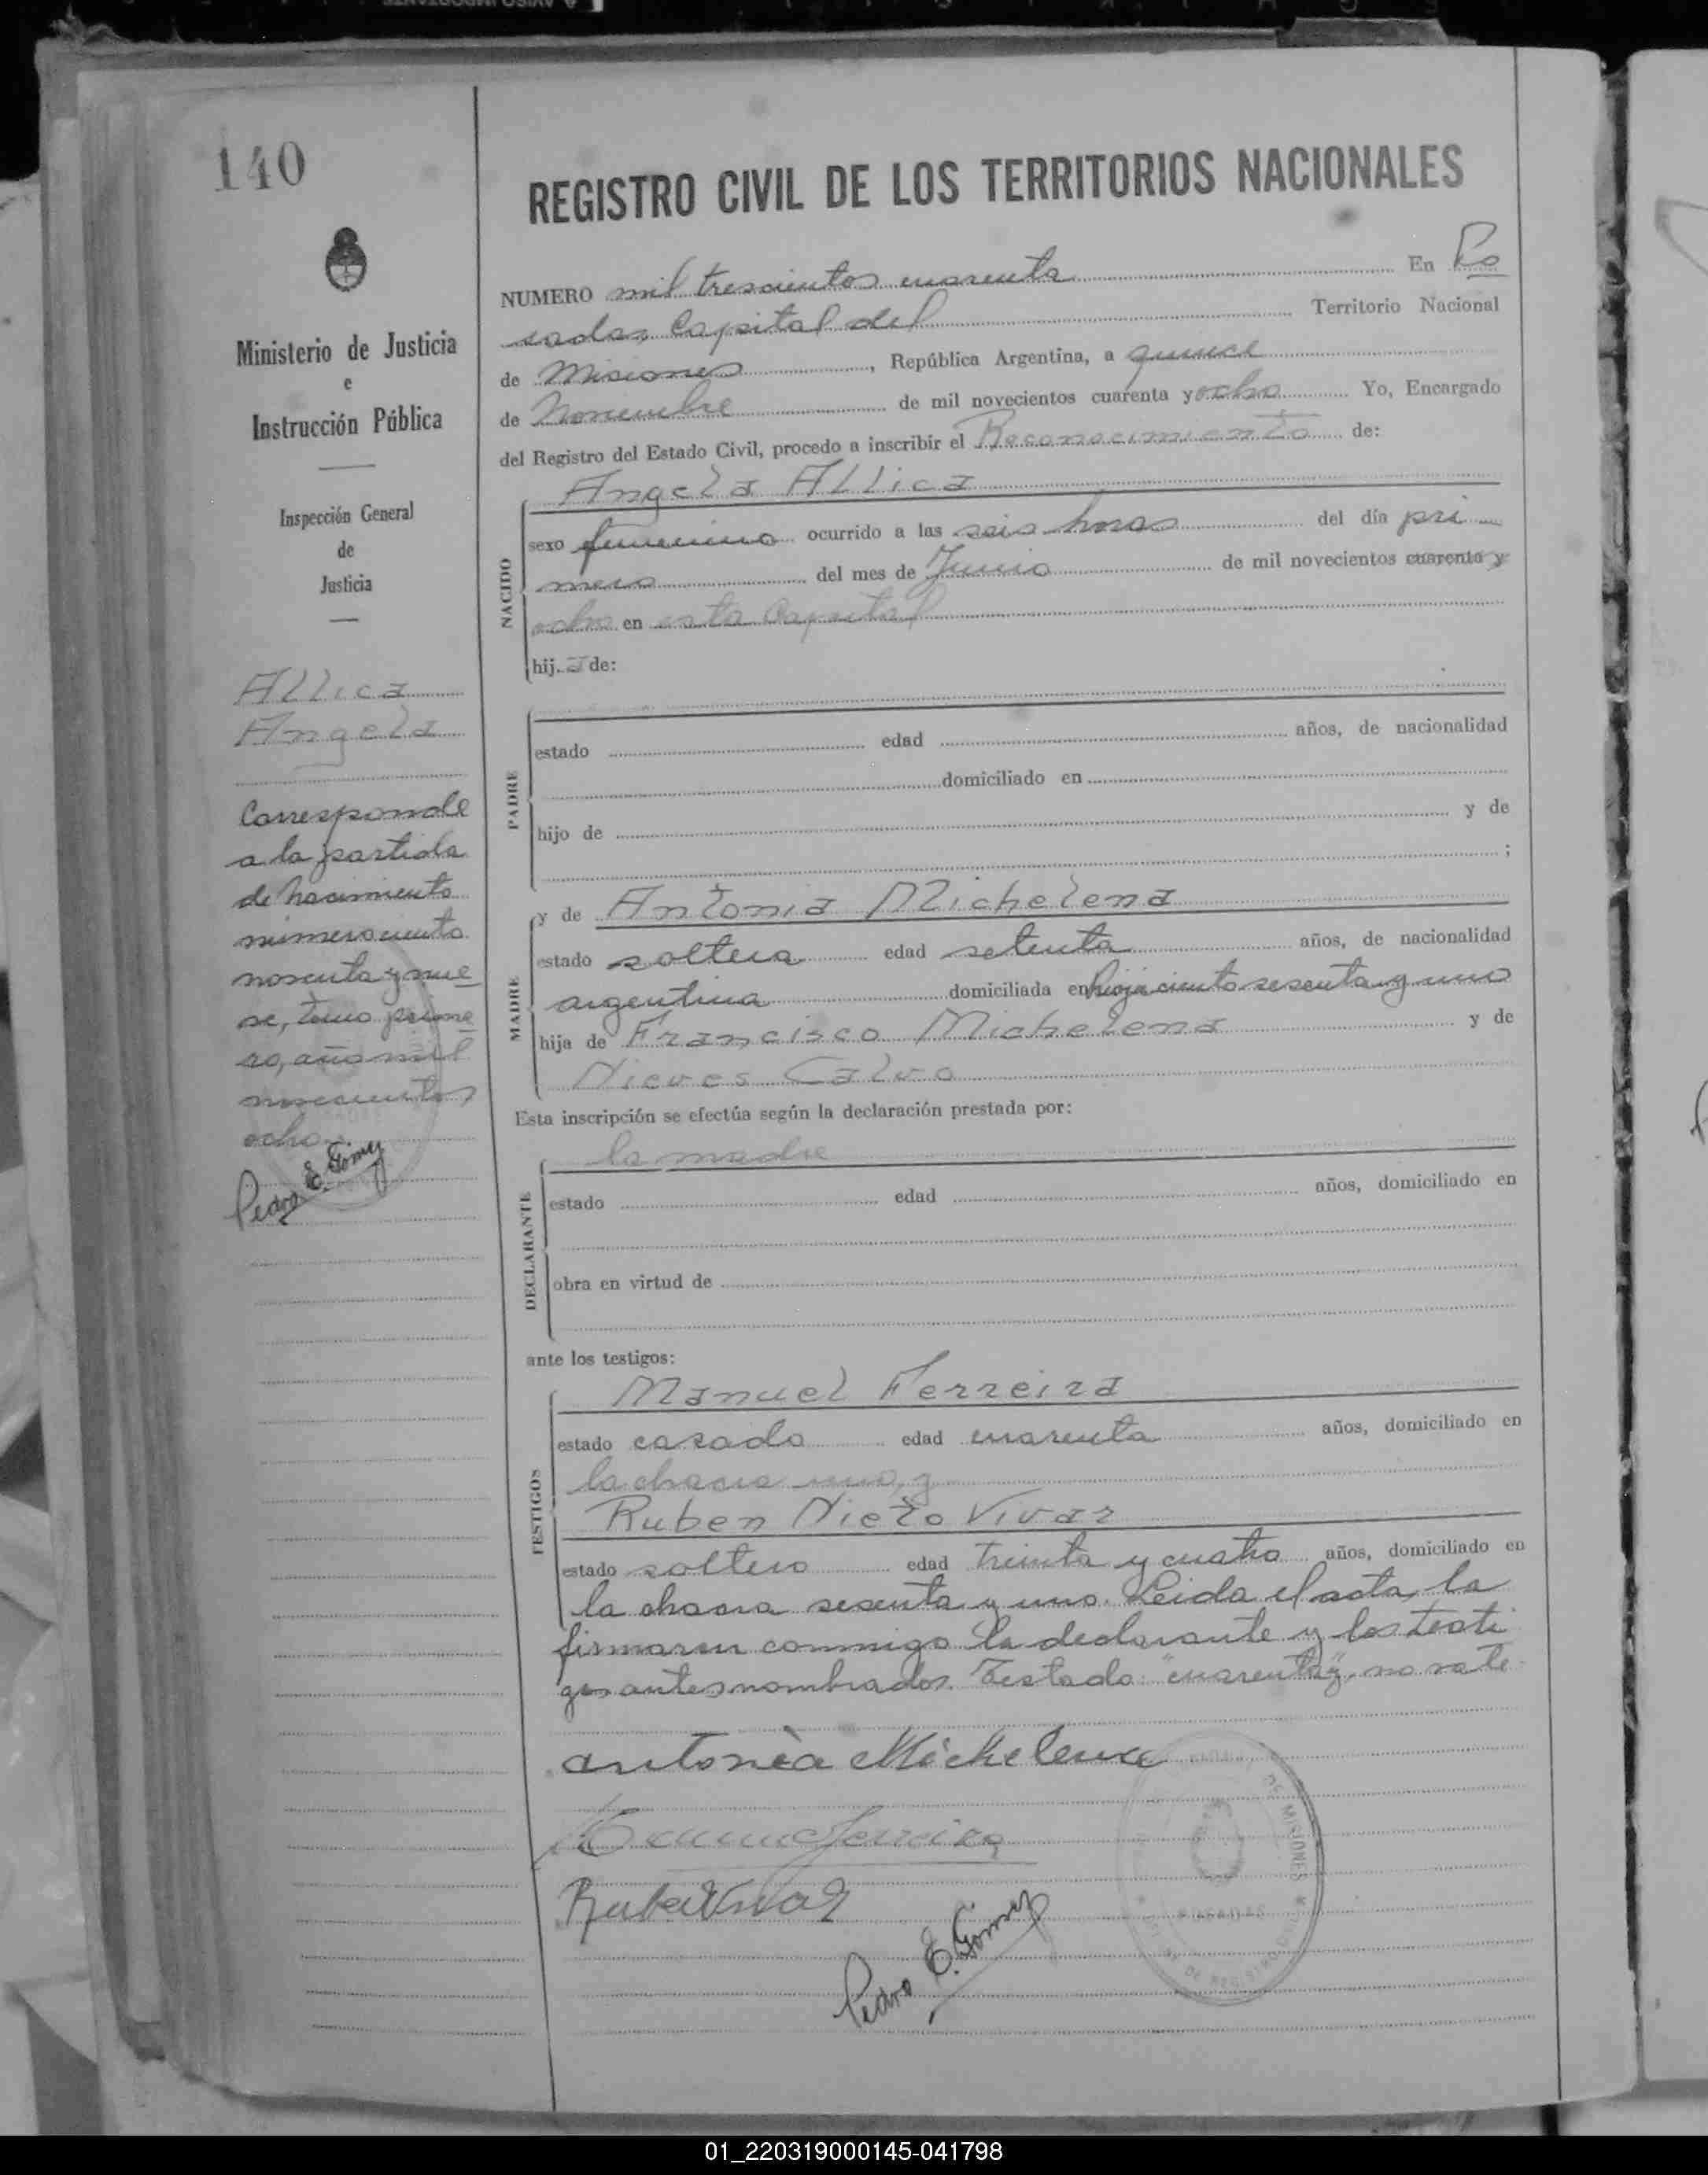 140
Ministerio de Justicia
e
Instrucción Pública
Inspección General
de
Justicia
Allica
Angela
Corresponde
a la partida
de Nacimiento
número ciento
noventa y nue
ve, tomo prime
ro, año mil
novecientos
ocho.
Pedro E. Gómez
REGISTRO CIVIL DE LOS TERRITORIOS NACIONALES
NUMERO mil trescientos cuarenta En Po
sadas, Capital del Territorio Nacional
de Misiones, República Argentina, a quince
de Noviembre de mil novecientos cuarenta y ocho Yo, Encargado
del Registro del Estado Civil, procedo a inscribir el Reconocimiento de:
Angela Allica
NACIDO
sexo femenino ocurrido a las seis horas del día pri
mero del mes de Junio de mil novecientos cuarenta y
ocho en esta Capital
hija de:
PADRE
estado edad años, de nacionalidad
domiciliado en
hijo de y de
;
y de Antonia Michelena
MADRE
estado soltera edad setenta años, de nacionalidad
argentina domiciliada en Rioja ciento sesenta y uno
hija de Francisco Michelena y de
Nieves Calvo
Esta inscripción se efectúa según la declaración prestada por:
la madre
DECLARANTE
estado edad años, domiciliado en
obra en virtud de
ante los testigos:
Manuel Ferreira
TESTIGOS
estado casado edad cuarenta años, domiciliado en
la chacra uno, y
Ruben Nieto Vivar
estado soltero edad treinta y cuatro años, domiciliado en
la chacra sesenta y uno. Leida el acta, la
firmaron conmigo la declarante y los testi
gos antes nombrados. Testado: "cuarenta y", no vale.
antonia Michelena
Ferreira
Pedro E. Gómez
DE MISIONES
POSADAS
01_220319000145-041798